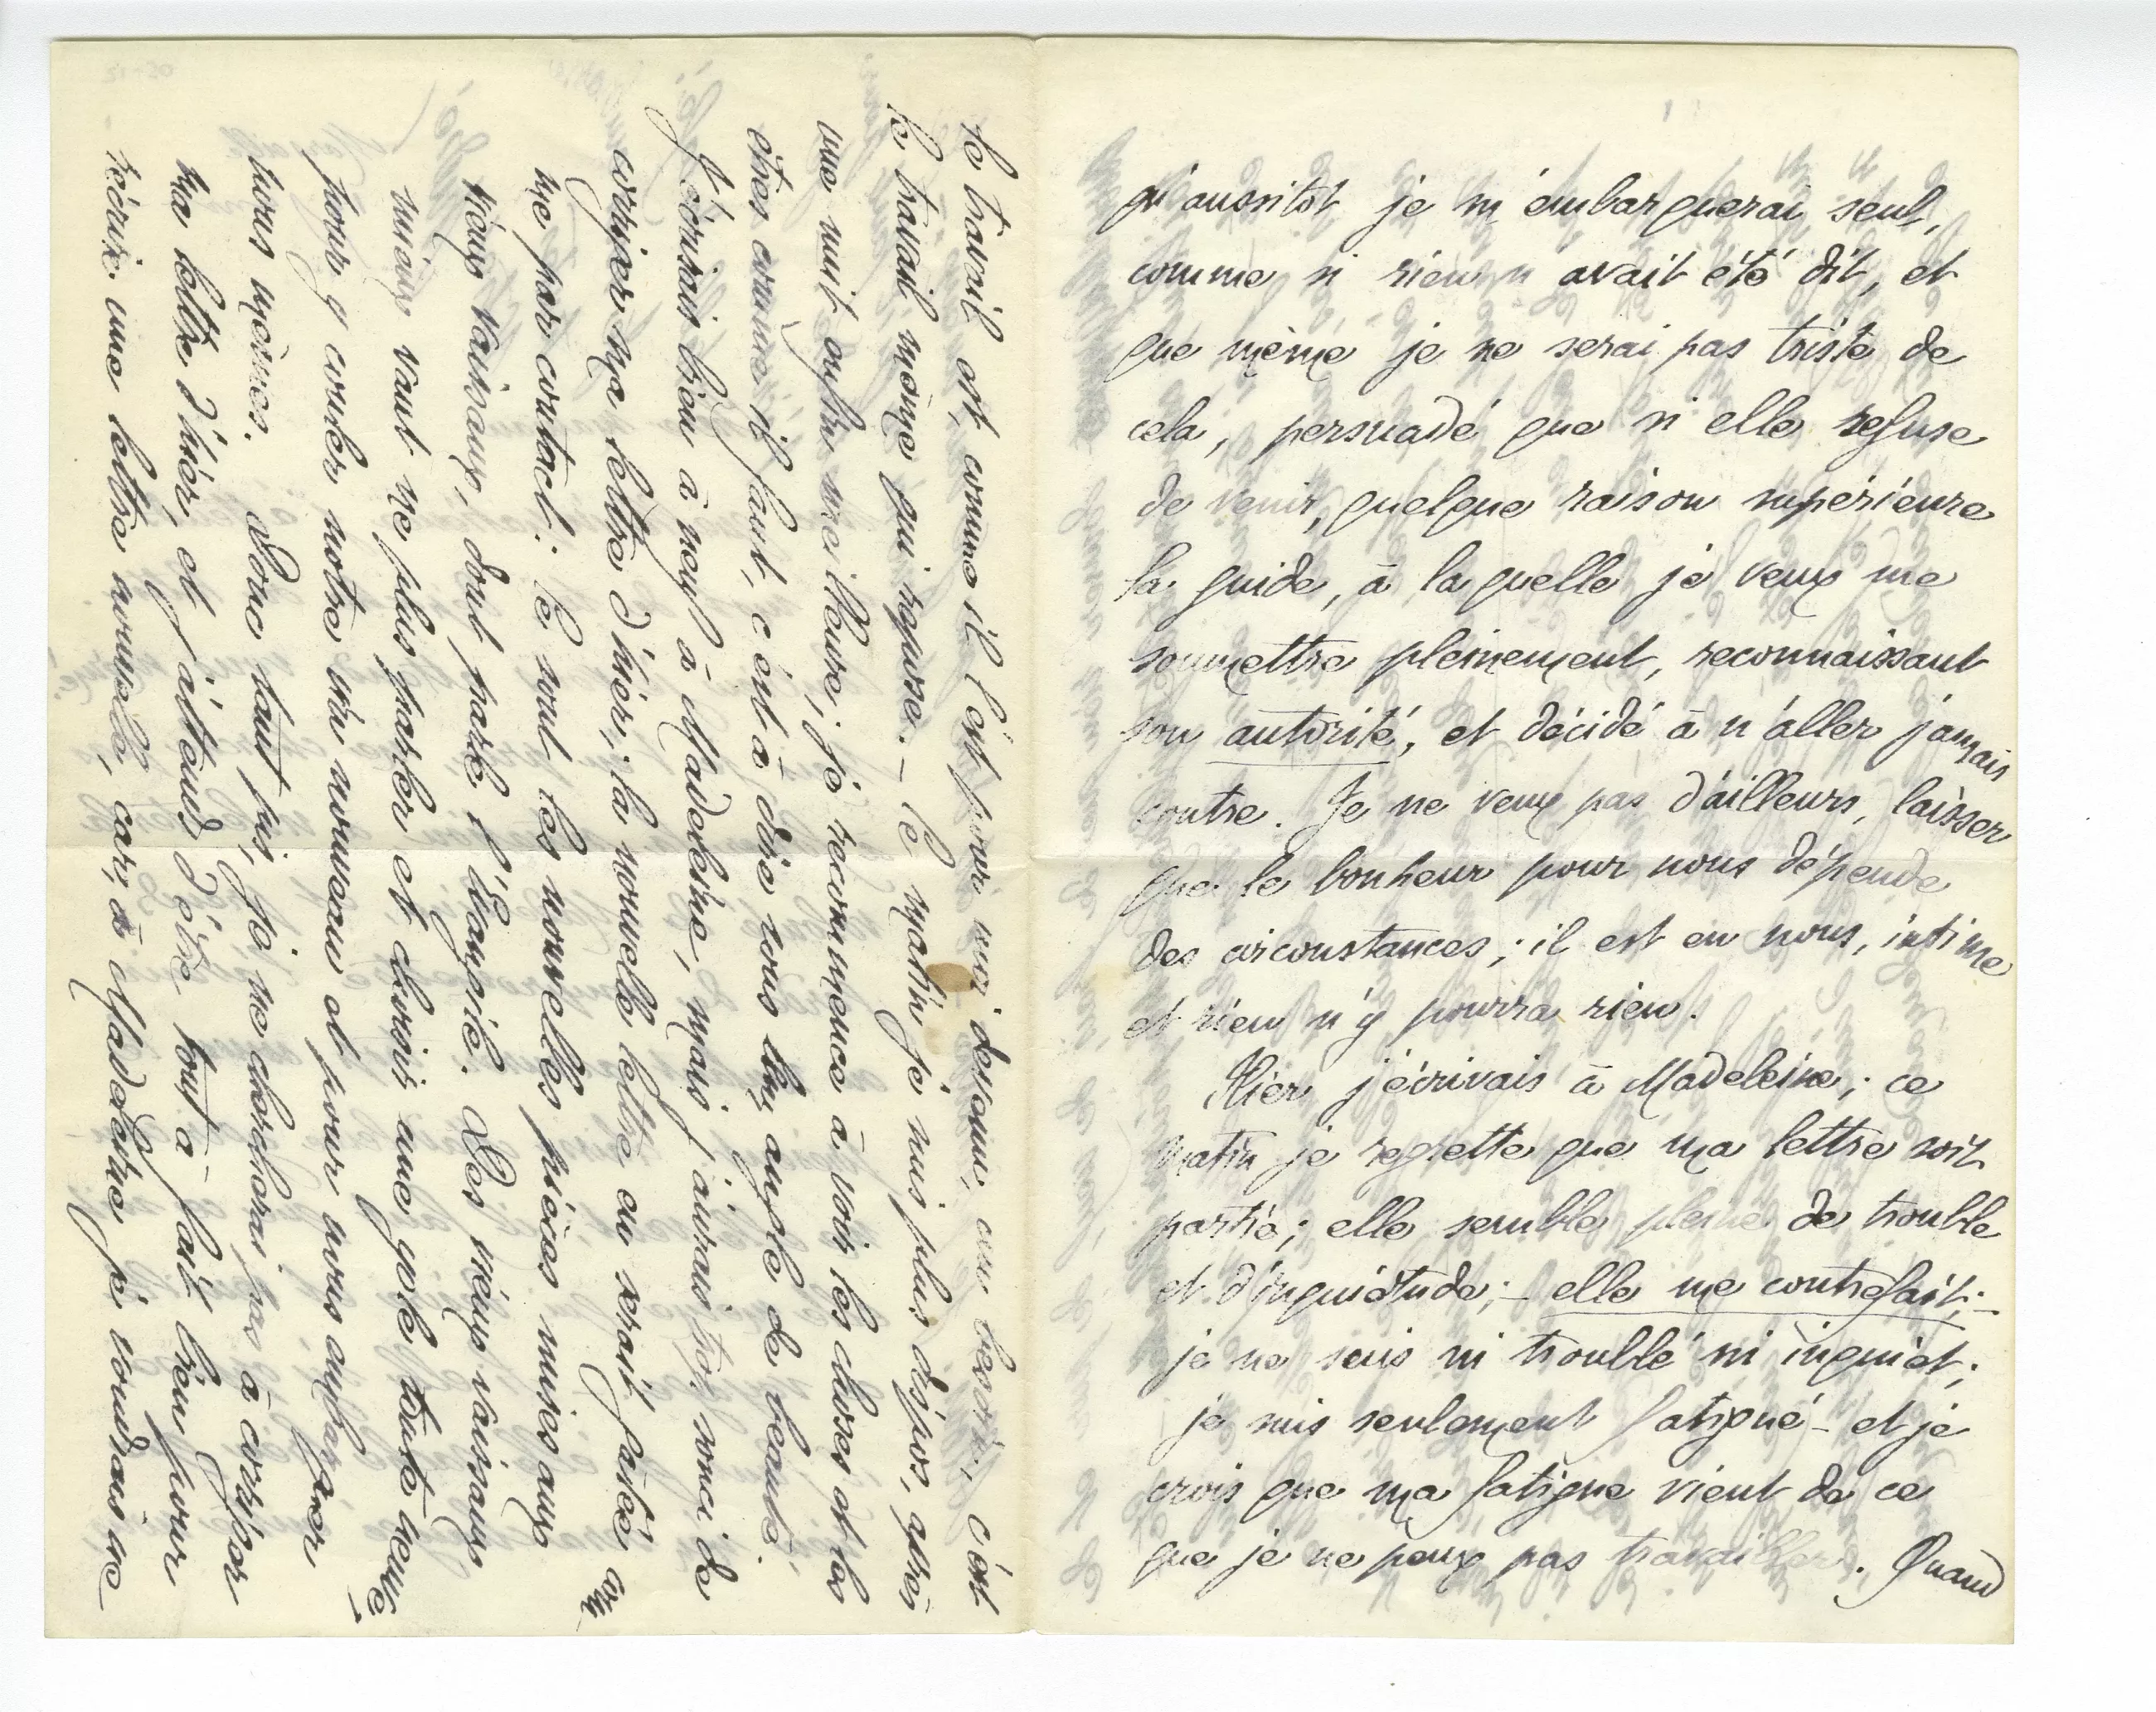 qu'aussitôt je m'embarquerai seul,
comme si rien n'avait été dit, et
que même je ne serai pas triste de
cela, persuadé que si elle refuse
de venir, quelque raison supérieure
la guide, à laquelle je veux me
soumettre pleinement, reconnaissant
son autorité, et décidé à n'aller jamais
contre. Je ne veux pas d'ailleurs, laisser
que le bonheur pour nous dépende
des circonstances ; il est en nous, intime
et rien n'y pourra rien.
Hier j'écrivais à Madeleine ; ce
matin je regrette que ma lettre soit
partie ; elle semble pleine de trouble
et d'inquiétude ; – elle me contrefait ; –
je ne suis ni troublé ni inquiet ;
je suis seulement fatigué – et je
crois que ma fatigue vient de ce
que je ne peux pas travailler. Quand
le travail est, comme il l'est pour moi devenu, un besoin, c'est
le travail même qui repose. – Ce matin je suis plus dispos, après
une nuit enfin meilleure ; je recommence à voir les choses et les
êtres comme il faut, c'est à dire sous leur angle de beauté.
J'écrirais bien à neuf à Madeleine, mais j'aurais trop souci de
corriger ma lettre d'hier ; la nouvelle lettre en serait gâtée com-
me par contact : Ce sont les nouvelles pièces mises aux
vieux vaisseaux, dont parle l'Évangile. Des vieux vaisseaux
mieux vaut ne plus parler et choisir une gourde toute neuve
pour y couler notre vin nouveau et pour nous oublier
nous mêmes. Donc tant pis, je ne chercherai pas à corriger
ma lettre d'hier, et j'attends d'être tout à fait bien pour
récrire une lettre nouvelle, car, à Madeleine je voudrais ne